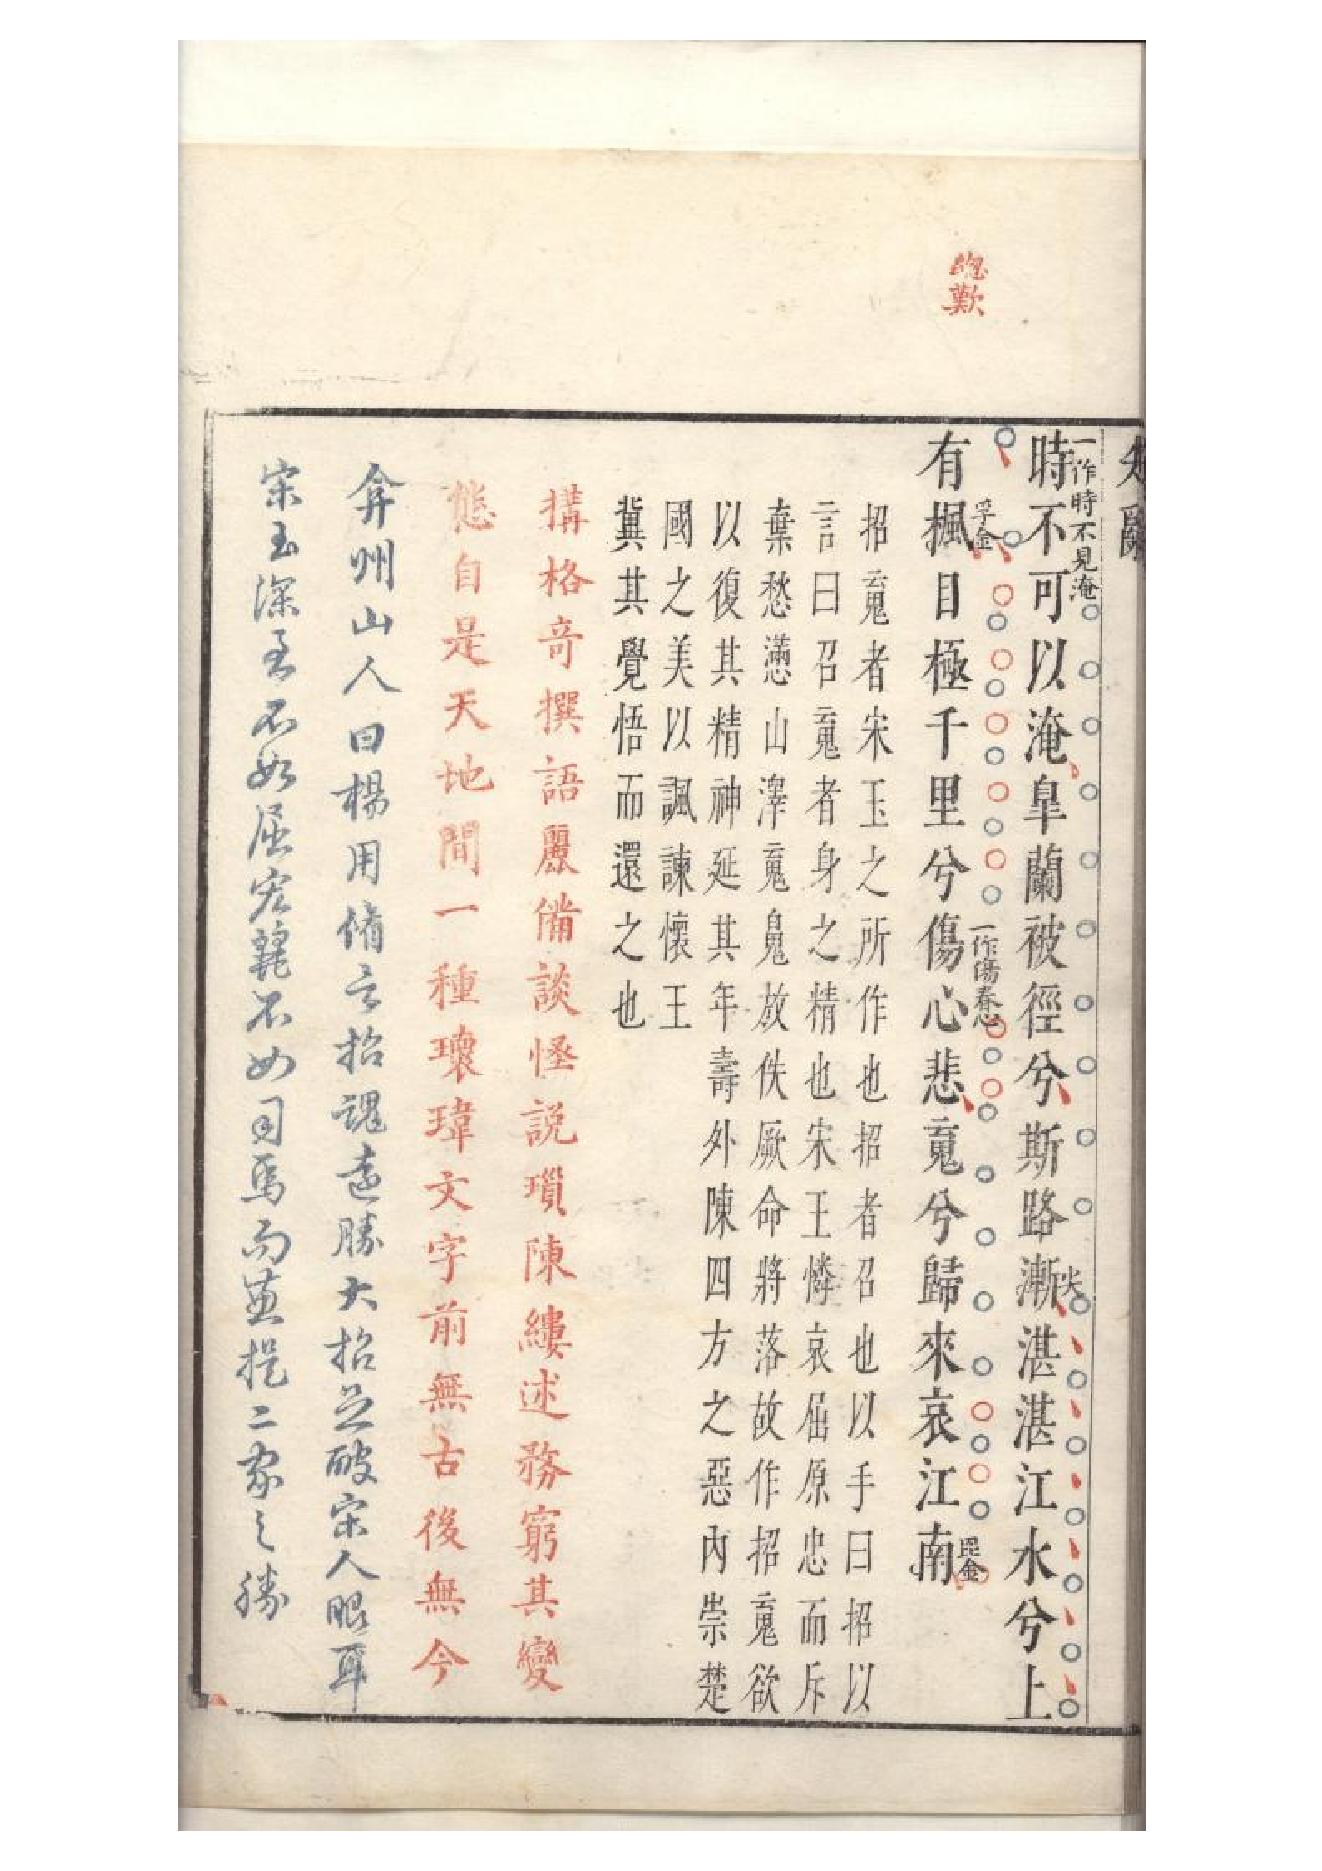 總歎
一作時不見淹
時不可以淹皐蘭被徑兮斯路漸湛湛江水兮上
尖
有楓目極千里兮傷心悲䰟兮歸來哀江南
孚金
一作傷春心
毘金
招䰟者宋玉之所作也招者召也以手曰招以
言曰召䰟者身之精也宋玉憐哀屈原忠而斥
棄愁懣山澤䰟魄放佚厥命將落故作招䰟欲
以復其精神延其年壽外陳四方之惡內崇楚
國之美以諷諫懷王
冀其覺悟而還之也
搆格竒撰語麗備談怪說瑣陳縷述務窮其變
態自是天地間一種瓌瑋文字前無古後無今
弇州山人曰楊用脩言招魂遠勝大招足破宋人眼耳
宋玉深至不如屈宏麗不如司馬而兼撮二家之勝